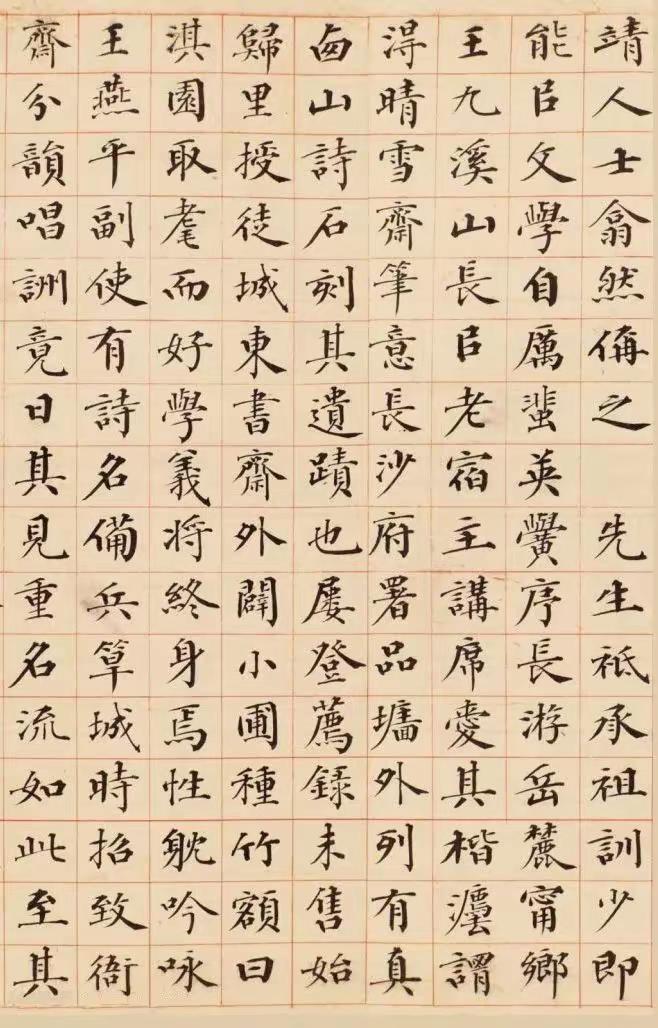 靖人士翕然偁之 先生祗承祖訓少即
能㠯文學自厲蜚英黌序長游岳麓甯鄉
王九溪山長㠯老宿主講席愛其楷灋謂
淂晴雪齋筆意長沙府署品墻外列有真
卥山詩石刻其遺蹟也屢登薦錄未售始
歸里授徒城東書齋外闢小圃種竹額曰
淇園取耄而好學義将終身焉性躭吟咏
王燕平副使有詩名備兵筸城時招致衙
齋分韻唱詶竟日其見重名流如此至其